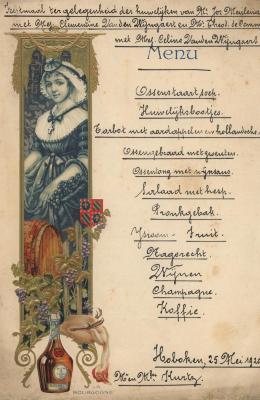 Feestmaal ter gelegenheid der huwelijken van Mr. Jos Meulena
met Mej. Clementine Van den Wijngaert en Mr. Theod. de Camm
met Mej. Celine Van den Wijngaert
Menu
Ossenstaartsoep.
Huwelijksbootjes.
Tarbot met aardappelen en hollandsche.
Ossengebraad met groenten.
Ossentong met wijnsaus.
Salaad met hesp.
Pronkgebak.
IJsroom - Fruit.
Nagerecht.
Wijnen
Champagne.
Koffie.
Hoboken, 25 Mei 1920
Men Mme Kurtz,
BOURGOGNE